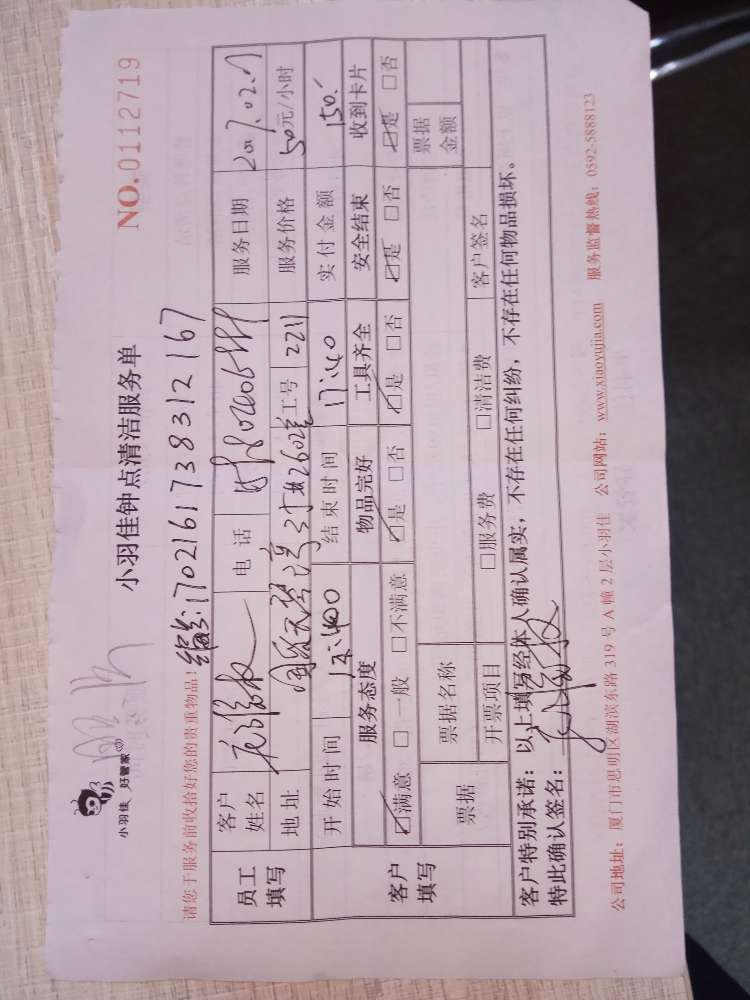 小羽佳 好管家
小羽佳钟点清洁服务单
NO.0112719
请您于服务前收拾好您的贵重物品!
编号:1702161738312167
员工填写
客户姓名
电话
服务日期
地址
工号 2211
服务价格 50元/小时
开始时间
结束时间 17:40
实付金额 150.
客户填写
服务态度 物品完好 工具齐全 安全结束 收到卡片
☑满意 □一般 □不满意 ☑是 □否 ☑是 □否 ☑是 □否 ☑是 □否
票据 票据名称 票据金额
开票项目 □服务费 □清洁费 客户签名
客户特别承诺:以上填写经本人确认属实,不存在任何纠纷,不存在任何物品损坏。
特此确认签名:
公司地址:厦门市思明区湖滨东路319号A幢2层小羽佳 公司网站:www.xiaoyujia.com 服务监督热线:0592-5888123